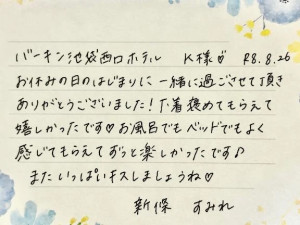 バーキン池袋西口ホテル　K様♡　R8.8.26
お休みの日のはじまりに一緒に過ごさせて頂き
ありがとうございました！下着褒めてもらえて
嬉しかったです♡お風呂でもベッドでもよく
感じてもらえてずっと楽しかったです♪
またいっぱいキスしましょうね♡
新保　すみれ